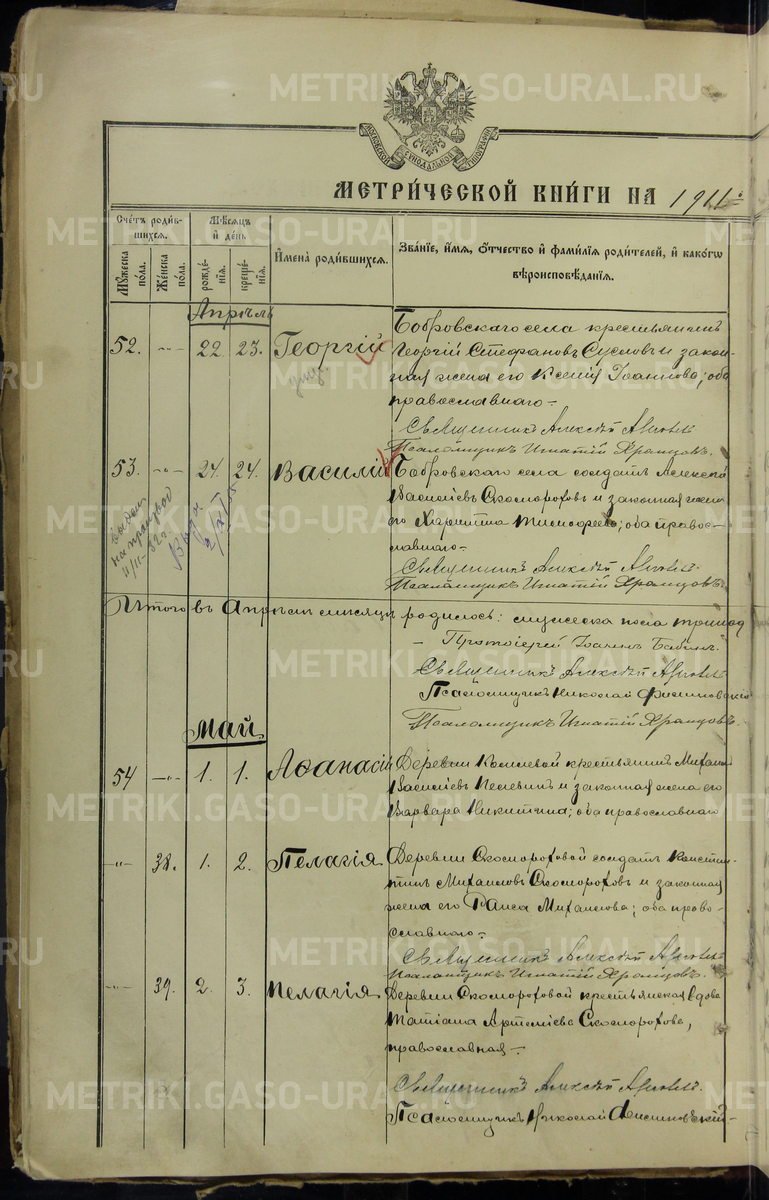 МОСКОВСКОЙ СУНОДАЛЬНОЙ ТИПОГРАФІИ
МЕТРИ́ЧЕСКОЙ КНИ́ГИ НА 1911
Сче́тъ роди́в-
шихся.
Мѣ́сяцъ
и҆ де́нь
Мꙋ́жеска
по́ла.
Же́нска
по́ла.
рожде́-
нїя.
креще́-
нїя.
И҆мена̀ роди́вшихся.
Зва́нїе, и҆́мя, ѻ҆́тчество и҆ фами́лїя роди́телей, и҆ како́гѡ
вѣроисповѣ́данїя.
Апрѣль
52. —„— 22. 23. Георгій
Бобровскаго села крестьянинъ
Георгій Стефановъ Сусловъ и закон-
ная жена его Ксенія Іоаннова; оба
православнаго.—
Священникъ Алексѣй
Псаломщикъ Игнатій Храмцовъ.
53. —„— 24. 24. Василій
Бобровскаго села солдатъ Алексѣй
Василіевъ Скоморохов и законная жена
его Харитина Тимофеева; оба право-
славнаго.—
Священникъ Алексѣй
Псаломщикъ Игнатій Храмцовъ.
Итого въ Апрѣлѣ мѣсяцѣ родилось: мужеска пола
— Протоіерей Іоаннъ
Священникъ Алексѣй
Псаломщикъ Николай
Псаломщикъ Игнатій Храмцовъ.
Май
54 —„— 1. 1. Аѳанасій
Деревни крестьянинъ Михаилъ
Василіевъ и законная жена его
Варвара Никитина; оба православнаго
—„— 38. 1. 2. Пелагія
Деревни Скомороховой солдатъ Констан-
тинъ Михаиловъ Скомороховъ и законная
жена его Раиса Михаилова; оба право-
славнаго.—
Священникъ Алексѣй
Псаломщикъ Игнатій Храмцовъ.
—„— 39. 2. 3. Пелагія
Деревни Скомороховой крестьянская вдова
Татіана Артеміева Скоморохова,
православная.—
Священникъ Алексѣй
Псаломщикъ Николай
METRIKI.GASO-URAL.RU